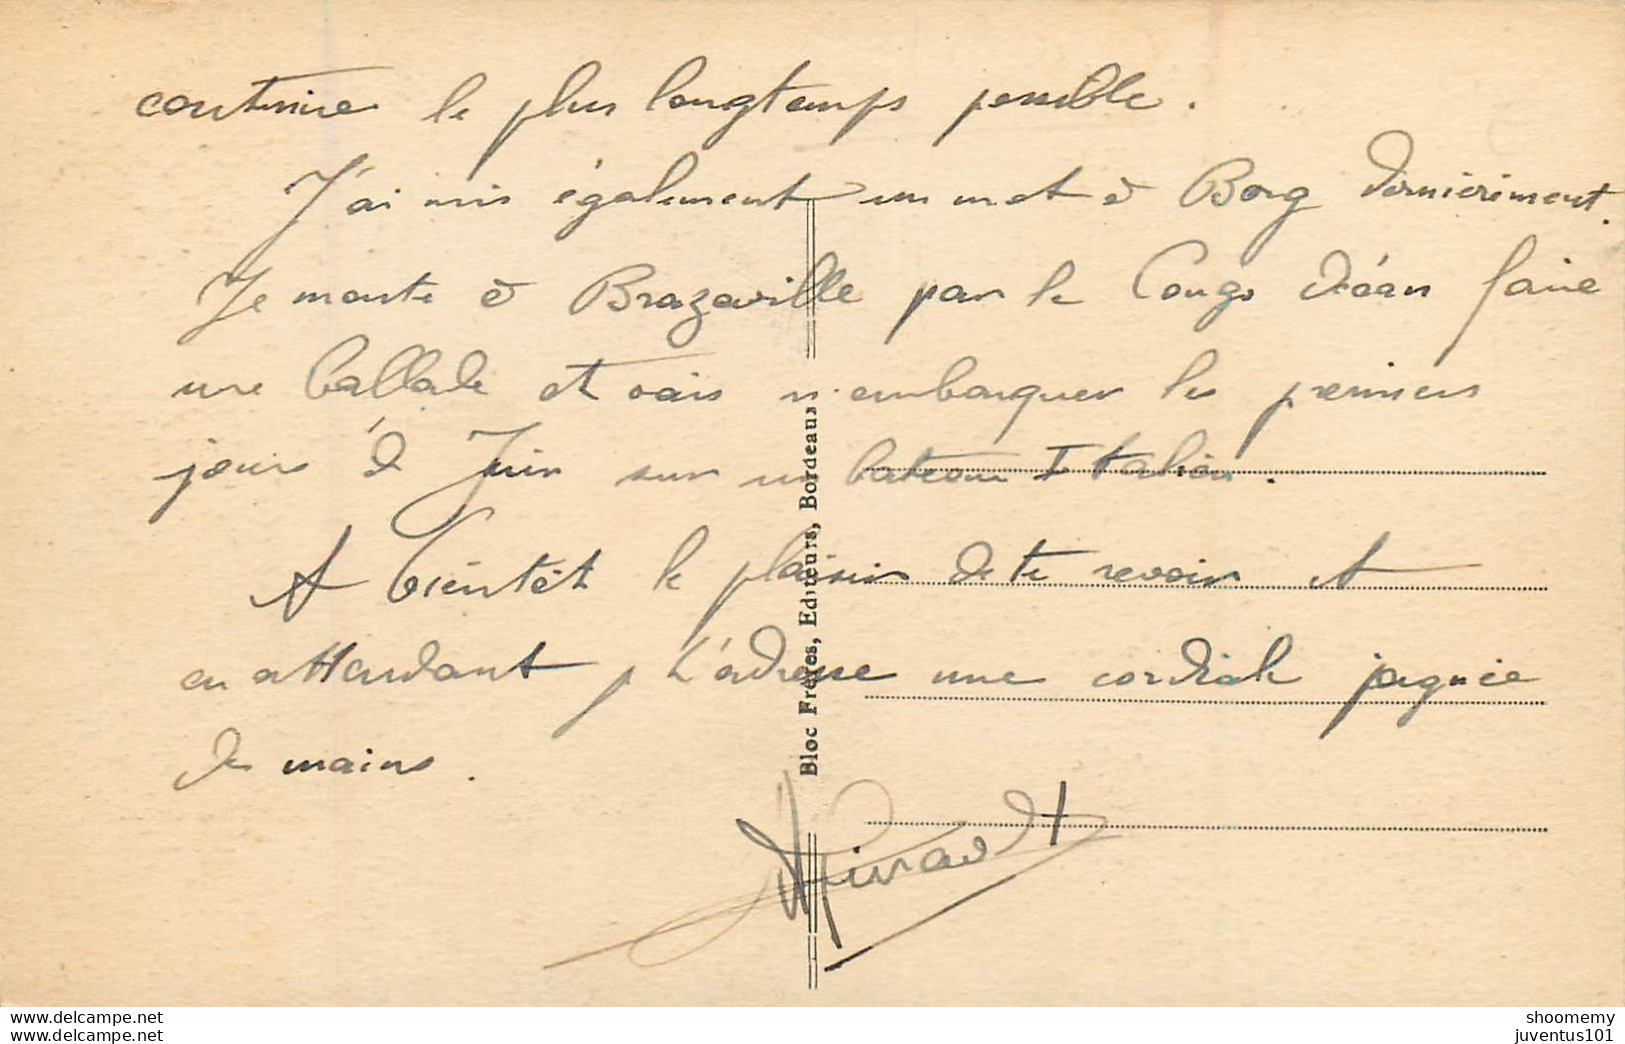 continue le plus longtemps possible.
J'ai mis également un mot à Borg dernièrement.
Je monte à Brazaville par le Congo Océan faire
une ballade et vais m'embarquer les premiers
jours de Juin sur un bateau Italien.
A bientôt le plaisir de te revoir et
en attendant je t'adresse une cordiale poignée
de mains.
Bloc Frères, Editeurs, Bordeaux
www.delcampe.net
www.delcampe.net
shoomemy
juventus101